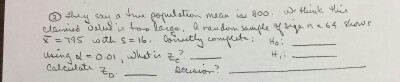 ② They say a true population mean is 800. We think this
claimed value is too large. A random sample of size n = 64 shows
x̄ = 795 with s = 16. Correctly complete: H₀: ____
Using α = 0.01, what is Zc? ____ H₁: ____
Calculate Z_D. Decision? ____